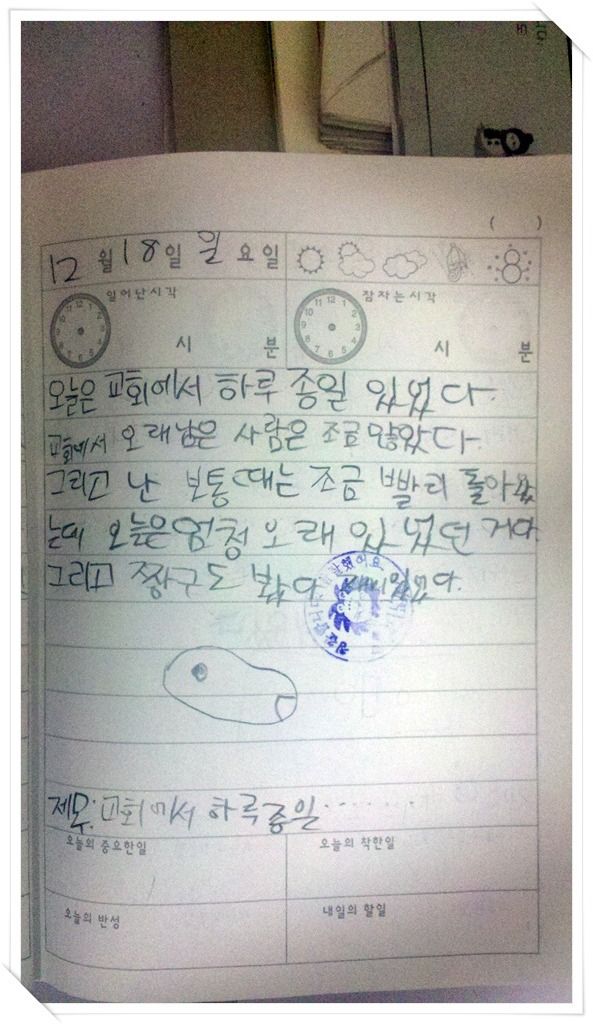 ( )
12월 18일 일요일
일어난시각 잠자는시각
시 분 시 분
오늘은 교회에서 하루 종일 있었다.
교회에서 오래남은 사람은 조금 많았다.
그리고 난 보통 때는 조금 빨리 돌아왔
는데 오늘은 엄청 오래 있었던 거다.
그리고 짱구도 봤다. 재미있었다.
참 잘했어요
제목: 교회에서 하루종일.......
오늘의 중요한일 오늘의 착한일
오늘의 반성 내일의 할일